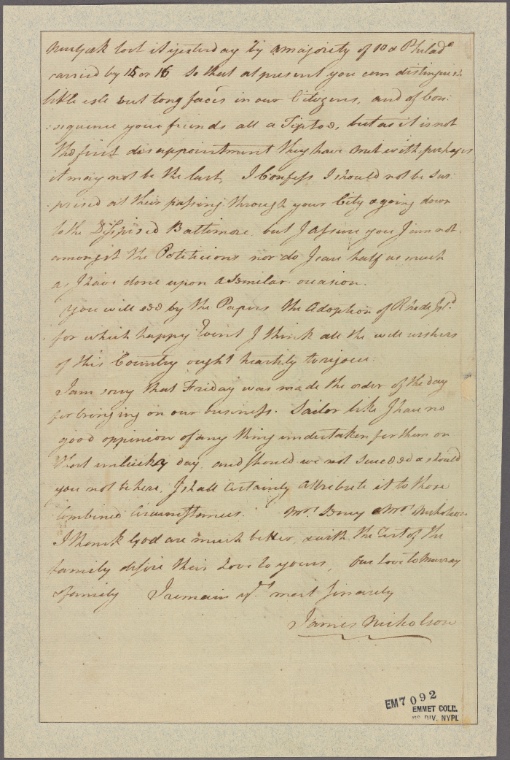 New York lost it yesterday by a majority of 10 & Philad.ª
carried by 15 or 16 so that at present you can distinguis
little else but long faces in our Citizens, and of Con-
sequence your friends all a Tiptoe, but as it is not
the first disappointment they have met with perhaps
it may not be the last, I Confess I should not be sur
prised at their passing through your City & going down
to the Despised Baltimore, but I assure you I am not
amongst the Politicions nor do I care half as much
as I have done upon a Similar ocasion.
You will see by the Papers the Adoption of Rhode Isd.
for which happy Event I think all the well wishers
of this Country ought heartily to rejoice
I am sorry that Friday was made the order of the day
for bringing on our business. Sailor like I have no
good oppinion of any thing undertaken for them on
that unlucky day, and should we not Succeed & should
you not be here, I shall Certainly attribute it to those
Combined Circumstances. Mrs. & Mrs. Nicholson
I thank God are much better, with the rest of the
family desire their Love to yours, Our Love to Murray
& family I remain yrs. most Sincerely
James Nicholson
EM7092
EMMET COLL.
DIV. NYPL